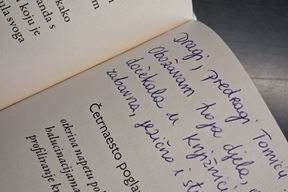 kako
anda s
i koju je
ula svoga
Dragi, predragi Tomica
Obožavam tvoja djela,
dočekala u Knjižnici
zabavna, jezično i st
Četrnaesto pogla
otkriva napetu po
halucinacijama
profiliranje k